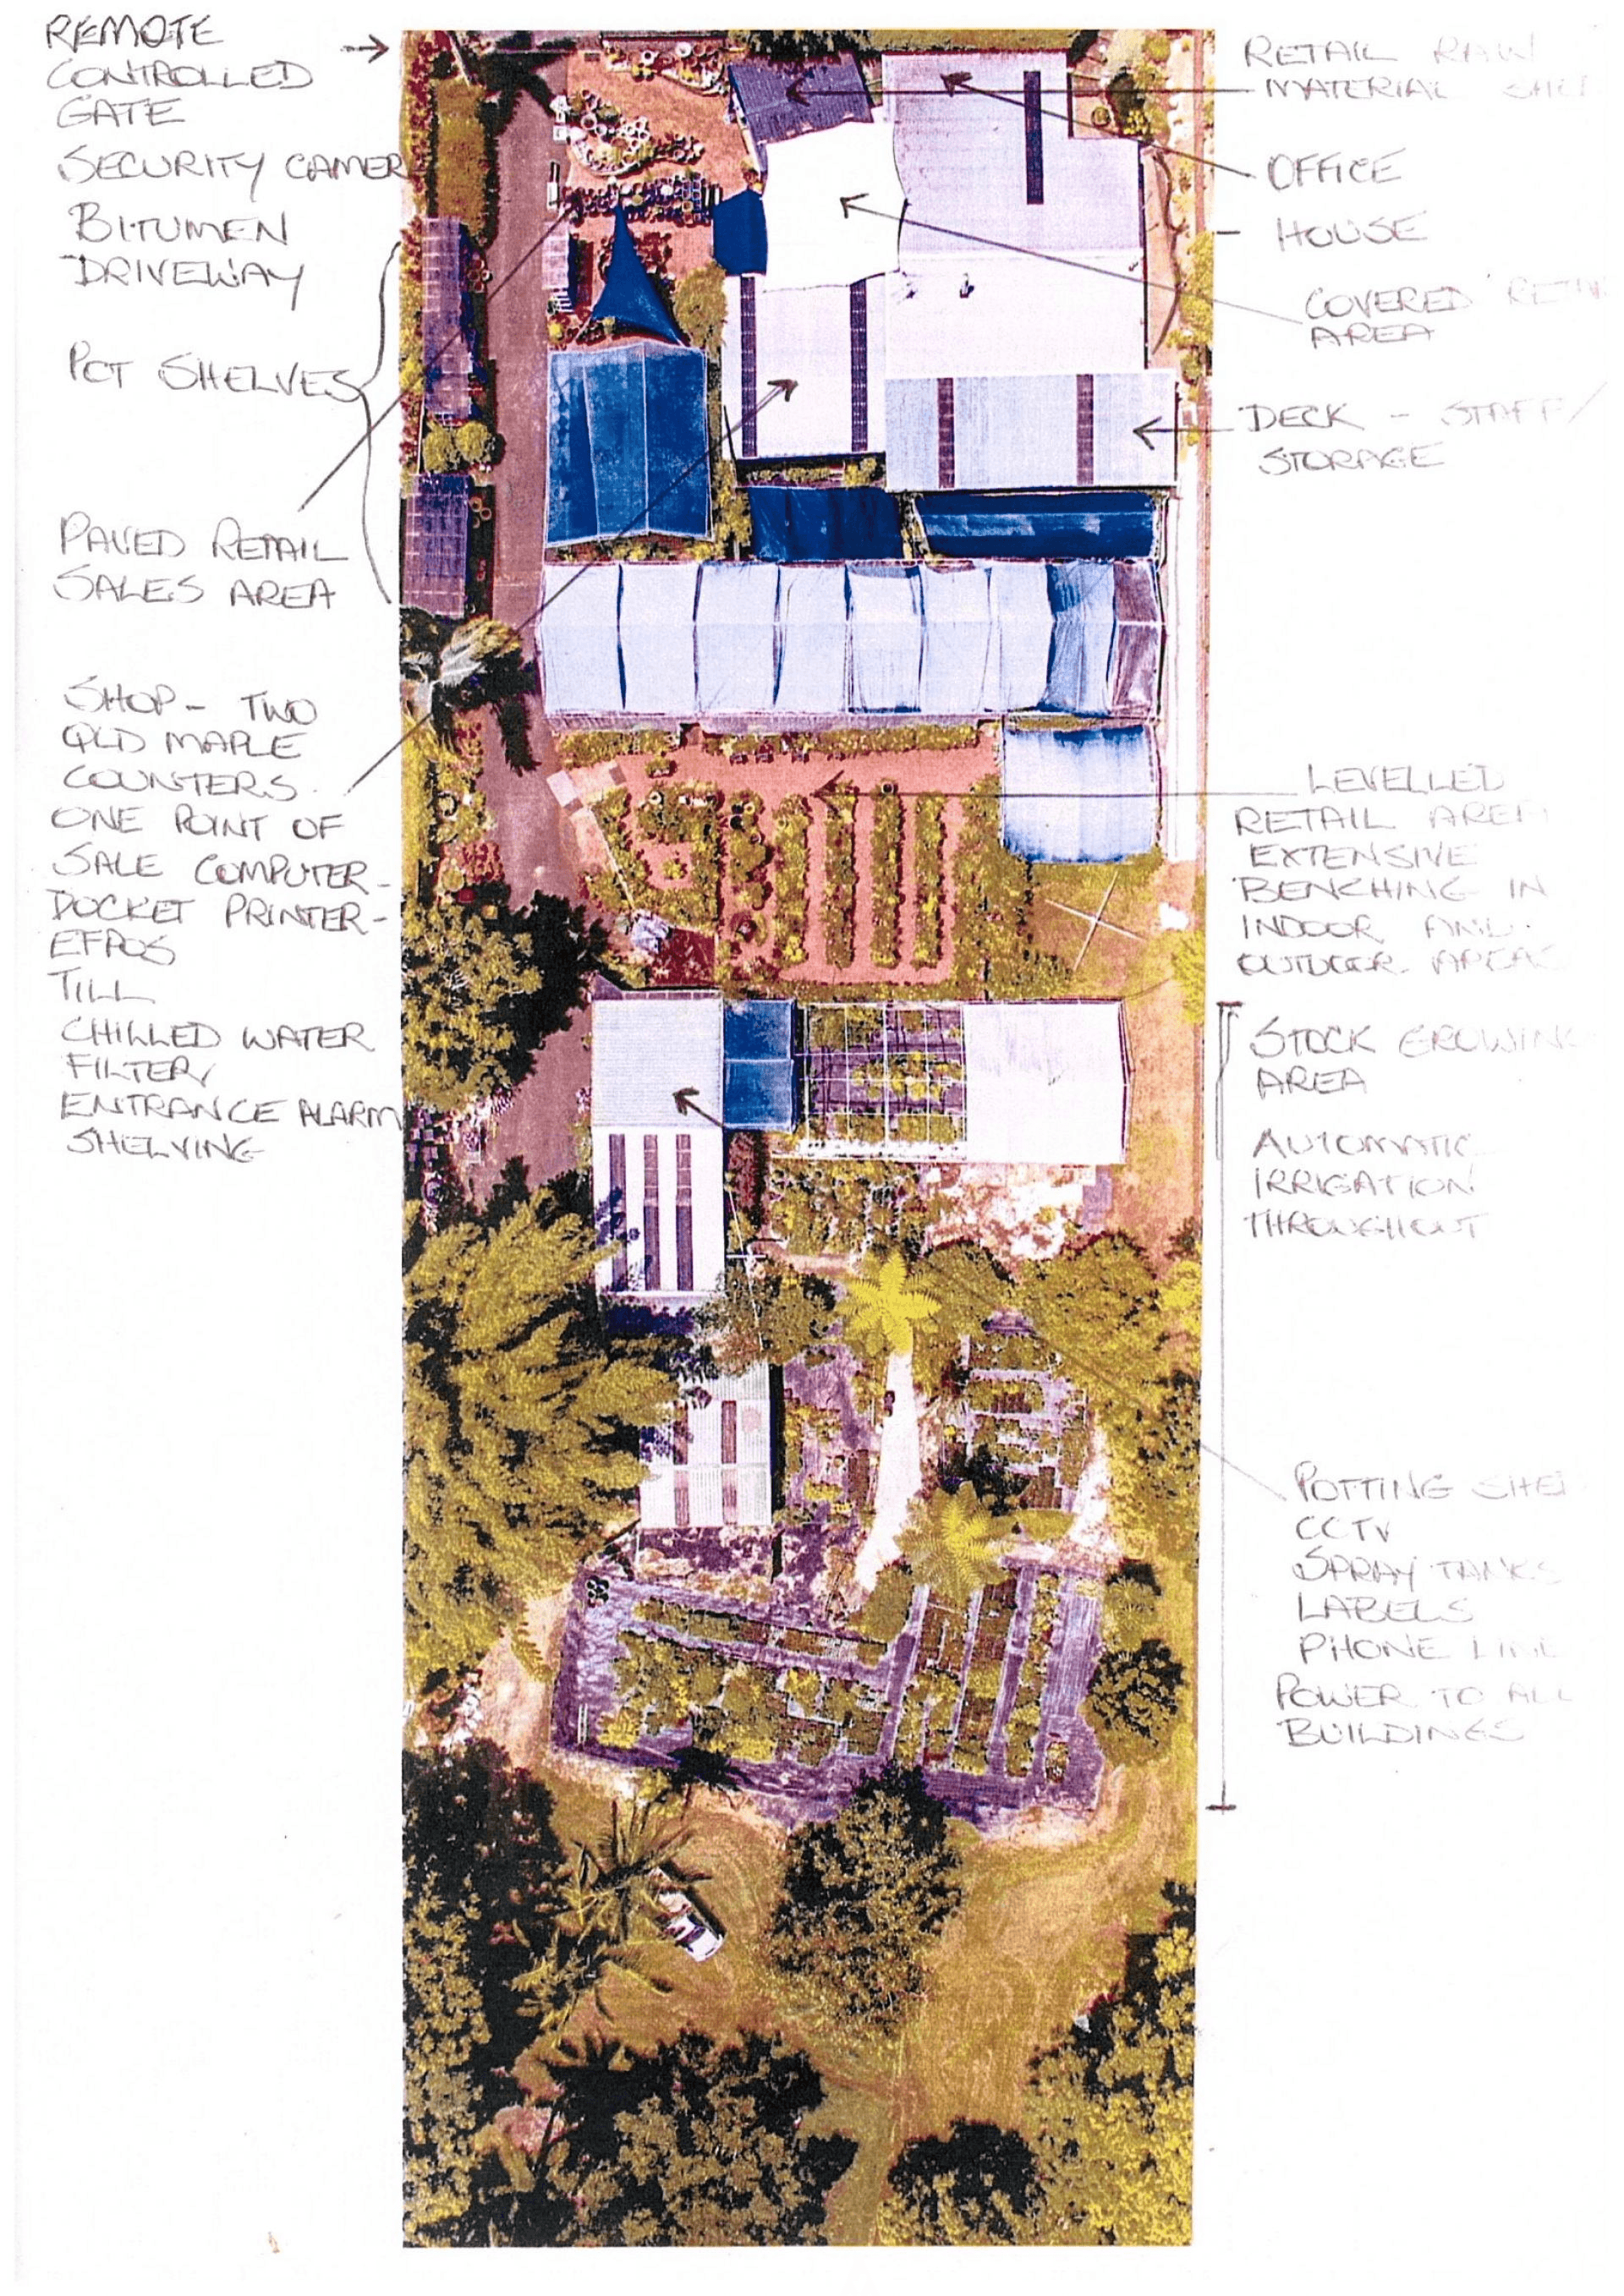 REMOTE
CONTROLLED
GATE
SECURITY CAMER
BITUMEN
DRIVEWAY
POT SHELVES
PAVED RETAIL
SALES AREA
SHOP - TWO
QLD MAPLE
COUNTERS.
ONE POINT OF
SALE COMPUTER -
DOCKET PRINTER -
EFPOS
TILL
CHILLED WATER
FILTER,
ENTRANCE ALARM
SHELVING
RETAIL RAW
MATERIAL SHE
OFFICE
- HOUSE
COVERED RETAI
AREA
DECK - STAFF /
STORAGE
LEVELLED
RETAIL AREA
EXTENSIVE
BENCHING IN
INDOOR AND
OUTDOOR AREAS
STOCK GROWING
AREA
AUTOMATIC
IRRIGATION
THROUGHOUT
POTTING SHE
CCTV
SPRAY TANKS
LABELS
PHONE LINE
POWER TO ALL
BUILDINGS